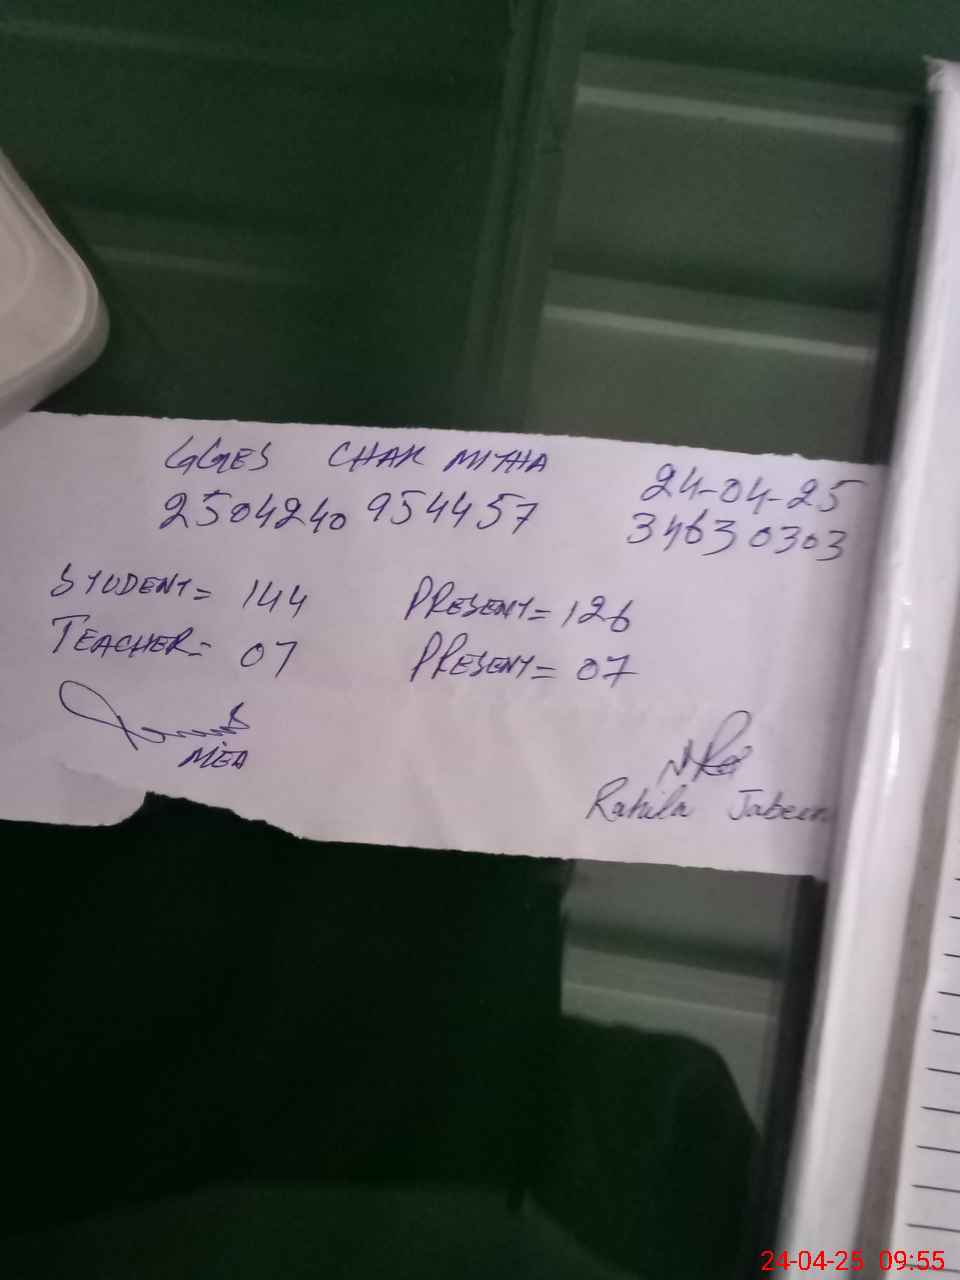 GGES CHAK MITHA 24-04-25
2504240954457 34630303
STUDENT= 144 PRESENT= 126
TEACHER= 07 PRESENT= 07
MEA
Rahila Jabeen
24-04-25 09:55